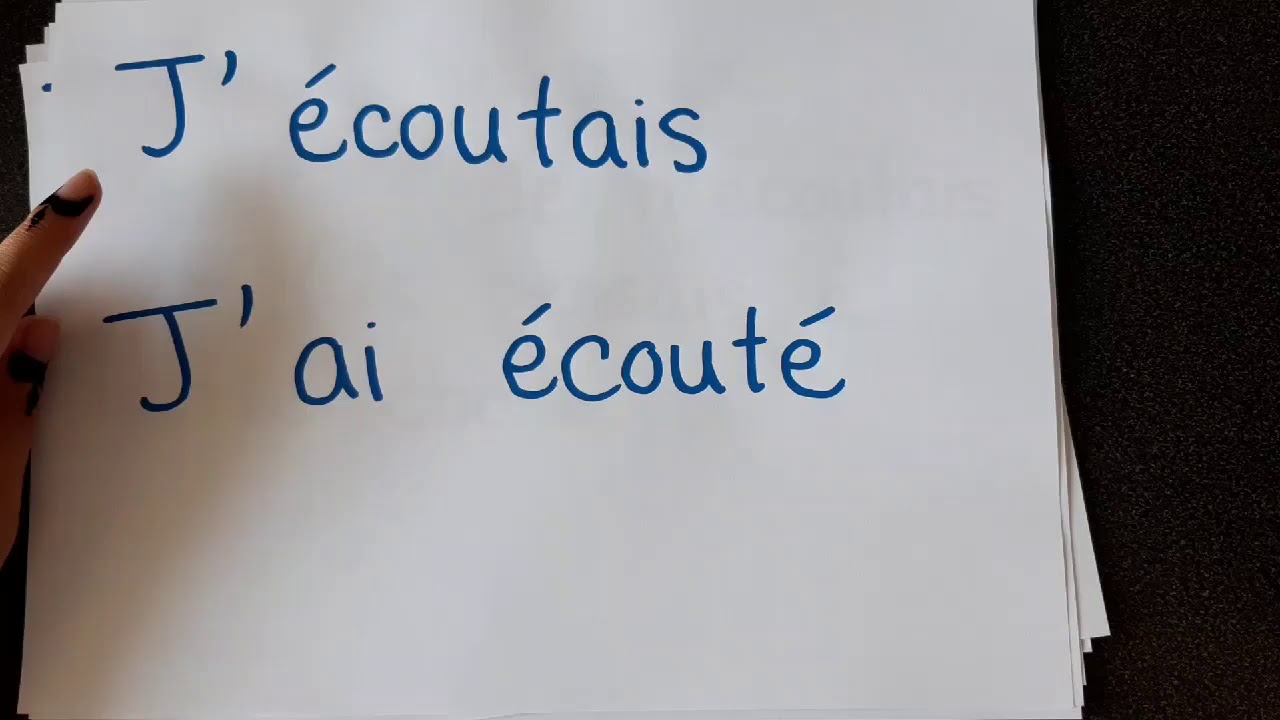 J'écoutais
J'ai écouté